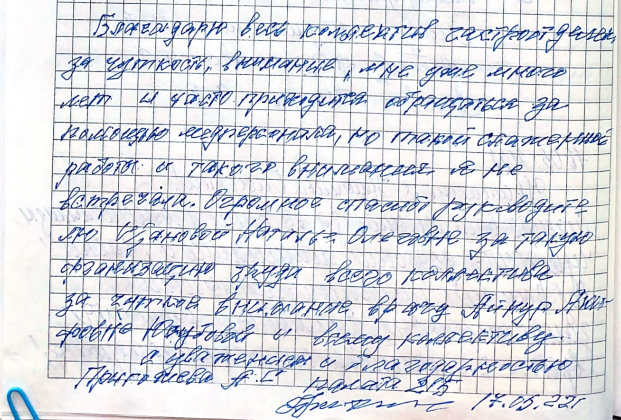 Благодарю весь коллектив гастроотделен.
за чуткость, внимание, мне уже много
лет и часто приходится обращаться за
помощью медперсонала, но такой слаженной
работы и такого внимания я не
встречала. Огромное спасибо руководите-
лю Наталье Олеговне за такую
организацию труда всего коллектива
за чуткое внимание врачу Айнур
и всему коллективу.
с уважением и благодарностью
А.С палата 215
17.05.22г